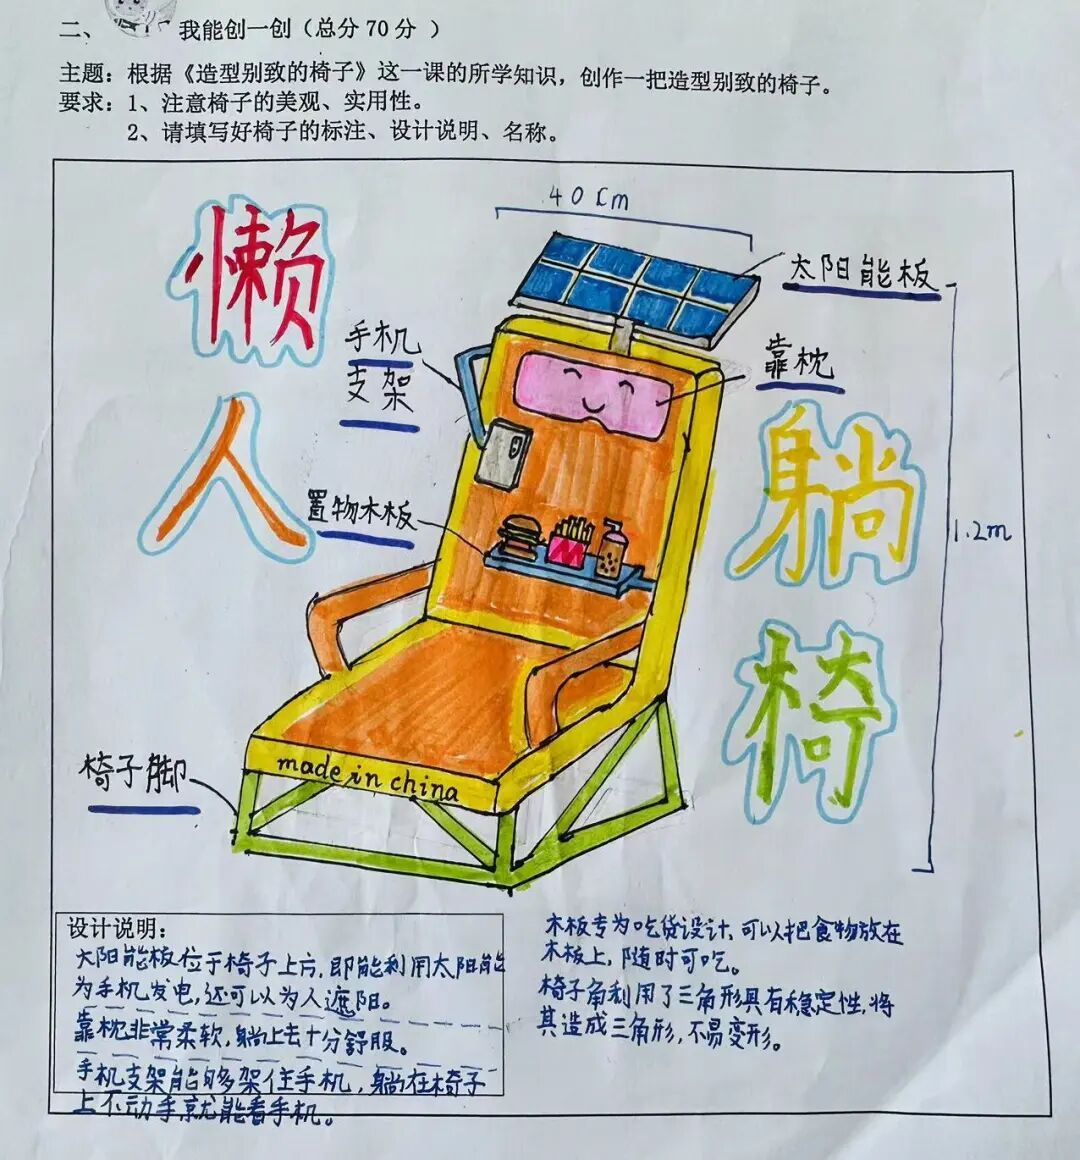 二、 我能创一创（总分 70 分 ）
主题：根据《造型别致的椅子》这一课的所学知识，创作一把造型别致的椅子。
要求：1、注意椅子的美观、实用性。
2、请填写好椅子的标注、设计说明、名称。
40cm
懒
人
躺
椅
太阳能板
手机
支架
靠枕
置物木板
1.2m
椅子脚
made in china
设计说明：
太阳能板位于椅子上方，即能利用太阳能
为手机发电，还可以为人遮阳。
靠枕非常柔软，躺上去十分舒服。
手机支架能够架住手机，躺在椅子
上不动手就能看手机。
木板专为吃货设计，可以把食物放在
木板上，随时可吃。
椅子角利用了三角形具有稳定性，将
其造成三角形，不易变形。